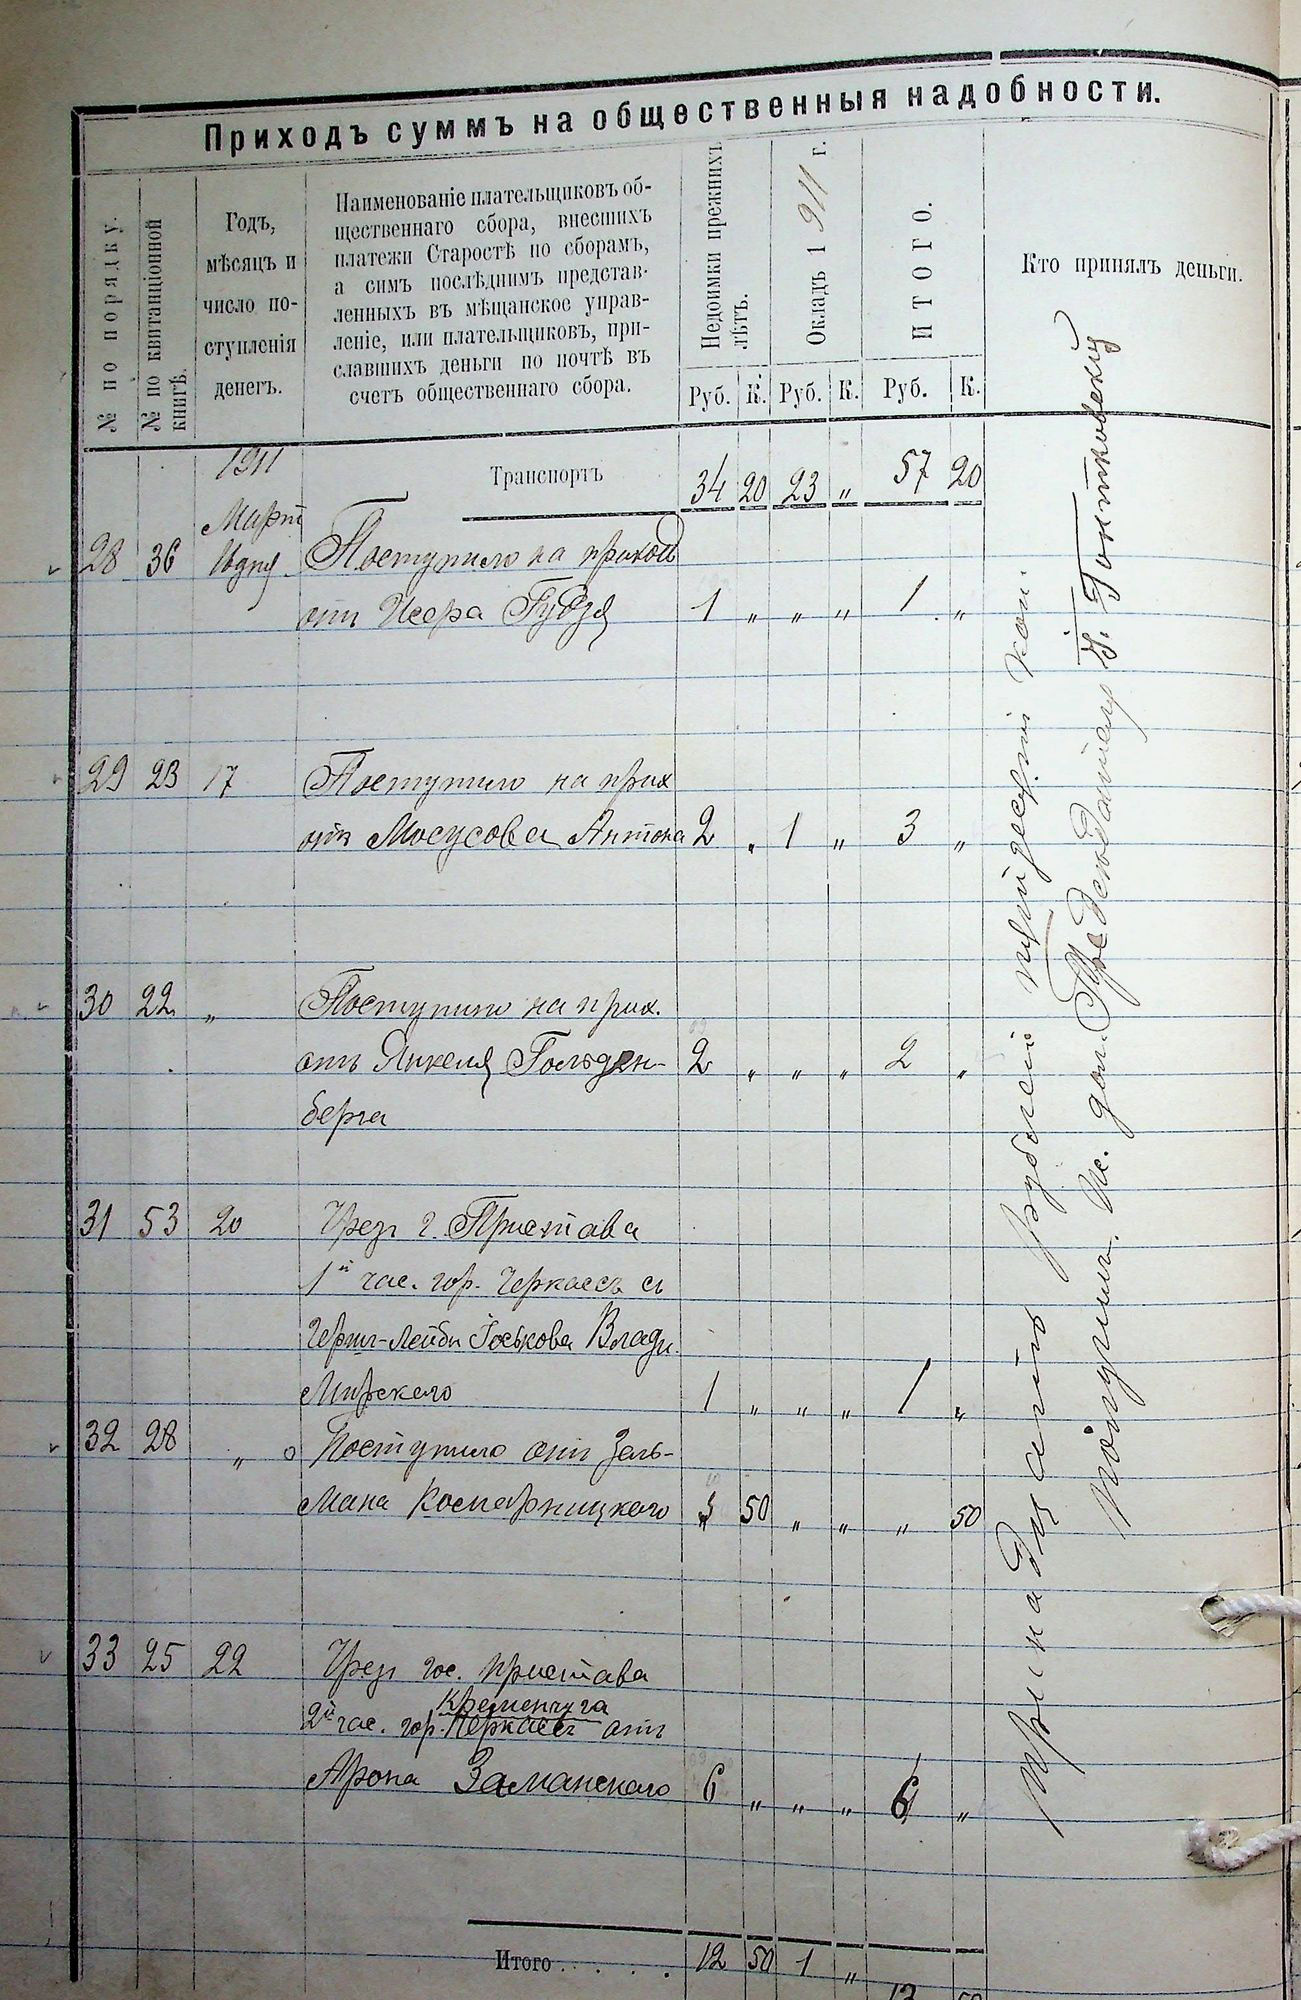 Приходъ суммъ на общественныя надобности.
№ по порядку.
№ по квитанціонной
книгѣ.
Годъ,
мѣсяцъ и
число по-
ступленія
денегъ.
Наименованіе плательщиковъ об-
щественнаго сбора, внесшихъ
платежи Старостѣ по сборамъ,
а симъ послѣднимъ представ-
ленныхъ въ мѣщанское управ-
леніе, или плательщиковъ, при-
славшихъ деньги по почтѣ въ
счетъ общественнаго сбора.
Недоимки прежнихъ
лѣтъ.
Окладъ 1911 г.
ИТОГО.
Кто принялъ деньги.
Руб. К. Руб. К. Руб. К.
1911
Транспортъ 34 20 23 „ 57 20
Мартъ
28 36 Поступило на приходъ
отъ Исера 1 „ „ „ 1 „
29 23 17 Поступило на прих
отъ Мосусова Антона 2 „ 1 „ 3 „
30 22 „ Поступило на прих.
отъ Янкеля Гольден- 2 „ „ „ 2 „
берга
31 53 20 Чрез г. Пристава
1й час. гор. Черкассъ съ
Герш-Лейбы Іоськова Влади
мирского 1 „ „ „ 1 „
32 28 „ Поступило отъ Зель-
мана 50 „ „ „ 50
33 25 22 Чрез гос. пристава
Кременчуга
2й час. гор. Черкассъ отъ
Арона Заманского 6 „ „ „ 6 „
Итого . . . . . 12 50 1 „ 13 50
Тринадцать рублей пятьдесят коп
получилъ. Ис. дол. Предсѣдателя